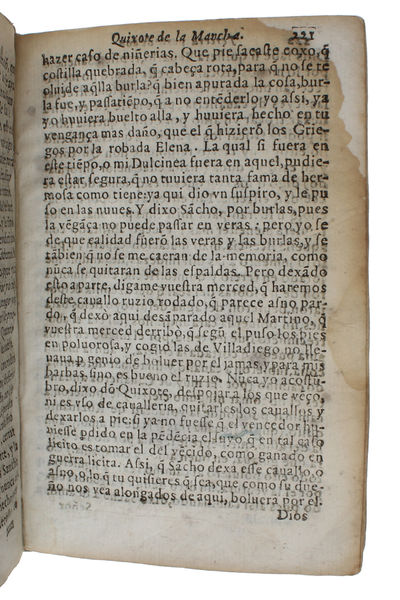 Quixote de la Mancha. 221
hazer caso de niñerias. Que pie sacaste coxo, q̃
costilla quebrada, q̃ cabeça rota, para q̃ no se te
oluide aq̃lla burla? q̃ bien apurada la cosa, bur-
la fue, y passatiẽpo, q̃ a no entẽderlo yo assi, ya
yo huuiera buelto alla, y huuiera hecho en tu
vengança mas daño, que el q̃ hizierõ los Grie-
gos por la robada Elena. La qual si fuera en
este tiẽpo, o mi Dulcinea fuera en aquel, pudie-
ra estar segura, q̃ no tuuiera tanta fama de her-
mosa como tiene: ya qui dio vn suspiro, y le pu
so en las nuues. Y dixo Sãcho, por burlas, pues
la vẽgãça no puede passar en veras: pero yo se
de que calidad fuerõ las veras y las burlas, y se
tãbien q̃ no se me caeran de la memoria, como
nũca se quitaran de las espaldas. Pero dexãdo
esto a parte, digame vuestra merced, q̃ haremos
deste cauallo ruzio rodado, q̃ parece asno par-
do, q̃ dexò aqui desãparado aquel Martino, q̃
vuestra merced derribò, q̃ segũ el puso los pies
en poluorosa, y cogio las de Villadiego no lle-
uaua p genio de boluer por el jamas, y para mis
barbas, sino es bueno el ruzio. Nũca yo acostũ-
bro, dixo dõ Quixote, despojar a los que vẽço,
ni es vso de caualleria, quitarles los cauallos y
dexarlos a pie: si ya no fuesse q̃ el vencedor hu-
uiesse pdido en la pẽdẽcia el suyo, q̃ en tal caso
licito es tomar el del vẽcido, como ganado en
guerra licita. Assi, q̃ Sãcho dexa esse cauallo, o
asno, o lo q̃ tu quisieres q̃ sea, que como su due-
ño nos vea alongados de aqui, boluera por el.
Dios